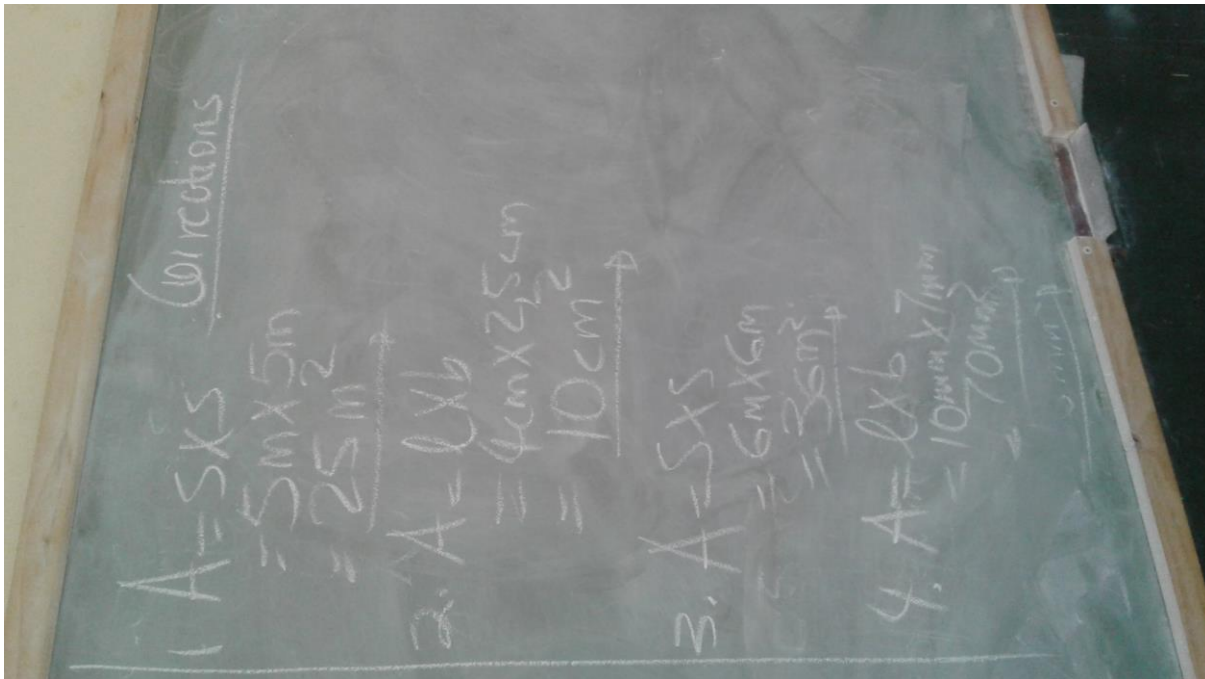 Corrections
1 A = S x S
= 5m x 5m
= 25m²
2. A = l x b
= 4cm x 2,5cm
= 10cm²
3. A = S x S
= 6m x 6m
= 36m²
4. A = l x b
= 10mm x 7mm
= 70mm²